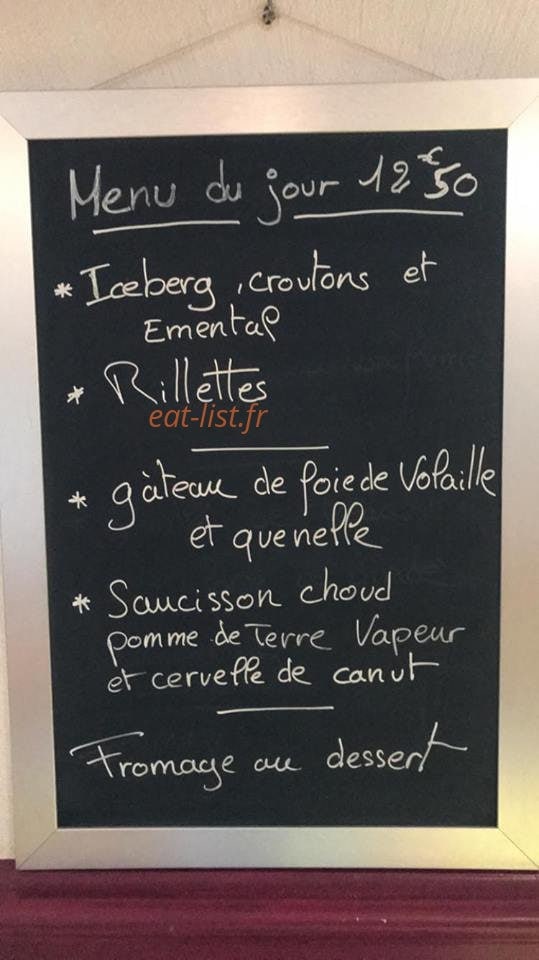 Menu du jour 12€50
* Iceberg, croutons et
Emental
* Rillettes
eat-list.fr
* gâteau de foie de Volaille
et quenelle
* Saucisson chaud
pomme de Terre Vapeur
et cervelle de canut
Fromage au dessert